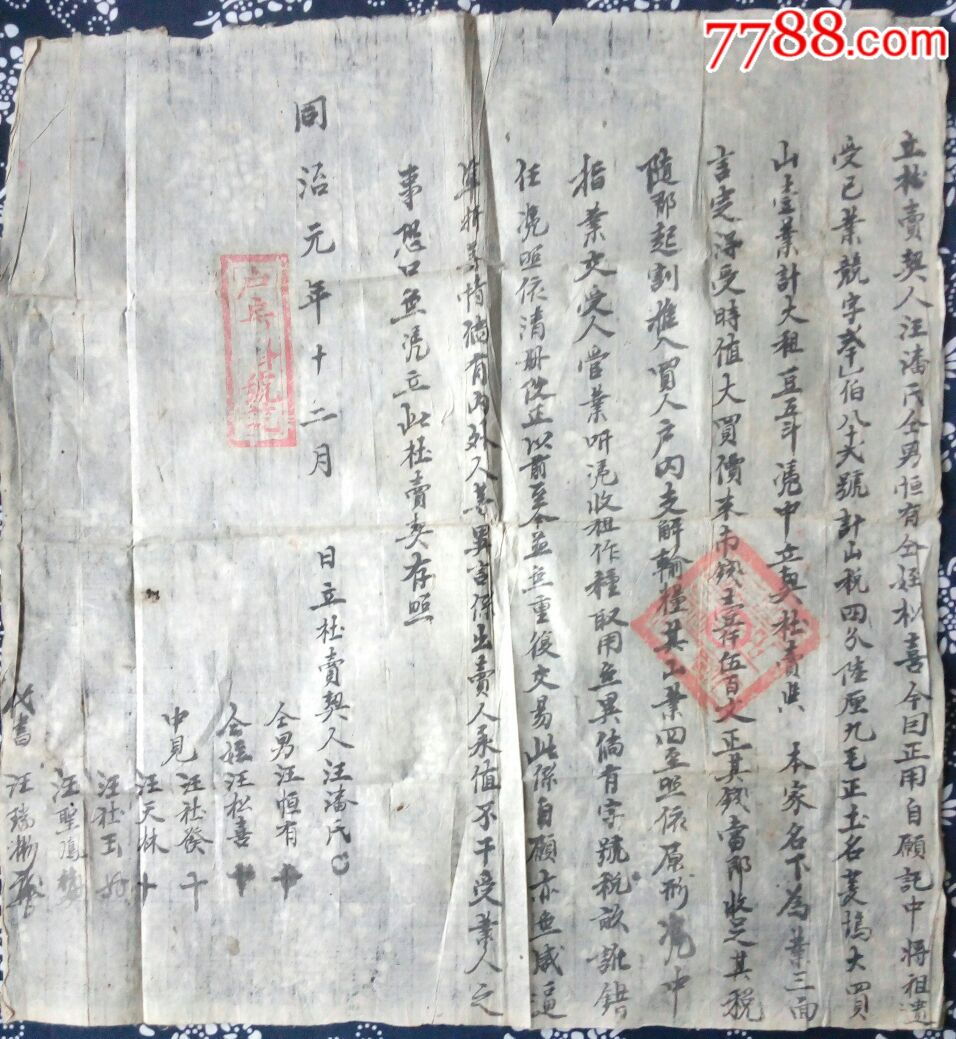 7788.com
立杜賣契人汪潘氏仝男恒有仝姪松喜今因正用自願託中將祖遺
受已業競字叁千八伯八十弍號計山稅四分陸厘九毛正土名菱塢大買
山壹業計大租豆五斗憑中立契杜賣與 本家名下為業三面
言定得受時值大買價來市錢五千伍百文正其錢當即收足其稅
隨即起割推入買人戶內支解輸糧其山業四至照依原形憑中
指業交受人管業听憑收租作種取用無異倘有字號稅畝訛錯
任憑照依清册改正以前至今並無重復交易此係自願亦無威逼
準折等情倘有內外人等異言係出賣人承值不干受業人之
事恐口無憑立此杜賣契存照
同治元年十二月
日立杜賣契人汪潘氏
仝男汪恒有
仝姪汪松喜
中見汪社發
汪天林
汪社玉
汪聖
代書汪瑞
戶房掛號訖